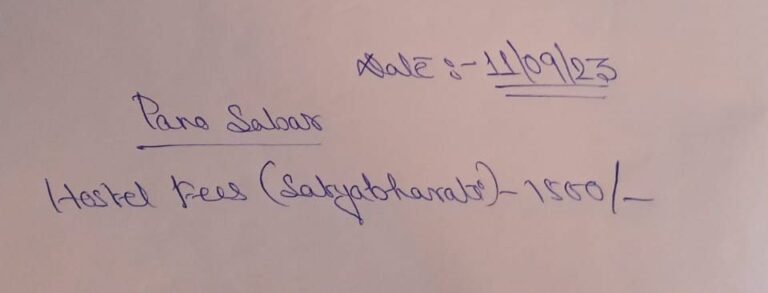 Date :- 11/09/23
Pano Sabar
Hostel Fees (Satyabharati) - 1500/-